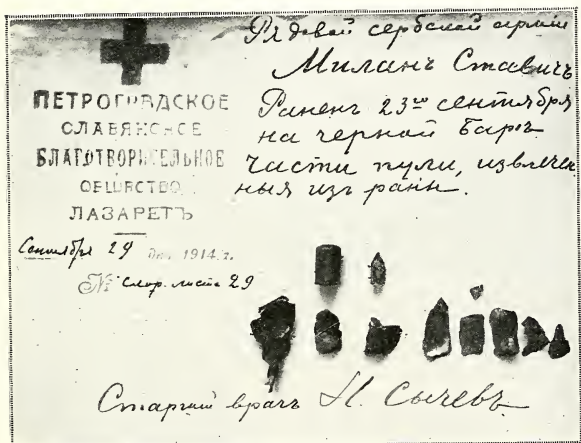 Рядовой сербской армiи
Миланъ Ставичъ
Раненъ 23го сентября
на черной Баръ
части пули, извлечен
ныя изъ ранн.
ПЕТРОГРАДСКОЕ
СЛАВЯНСКОЕ
БЛАГОТВОРИТЕЛЬНОЕ
ОБЩЕСТВО
ЛАЗАРЕТЪ
Сентября 29 дня 1914 г.
№ скор. листа 29
Старшiй врачъ Н. Сычевъ